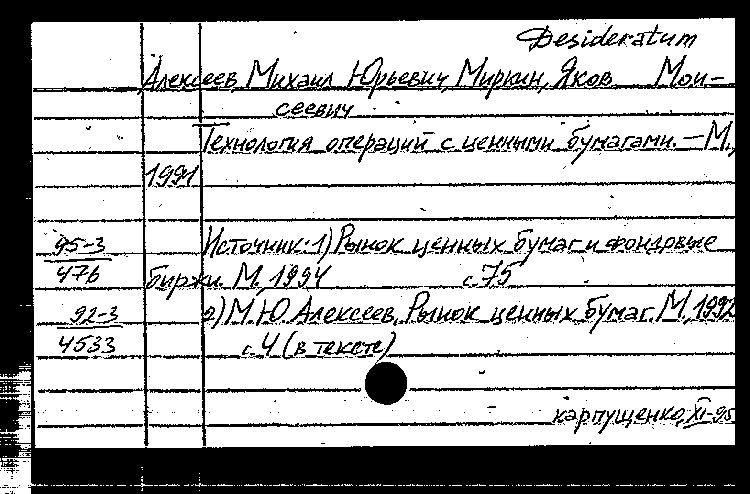 Desideratum
Алексеев, Михаил Юрьевич, Миркин, Яков Мои-
сеевич
Технология операций с ценными бумагами. — М.,
1991
95-3 Источник: 1) Рынок ценных бумаг и фондовые
476 биржи. М., 1994 с. 75
92-3 2) М.Ю. Алексеев. Рынок ценных бумаг. М., 1992
4533 с. 4 (в тексте)
карпущенко, XI-95